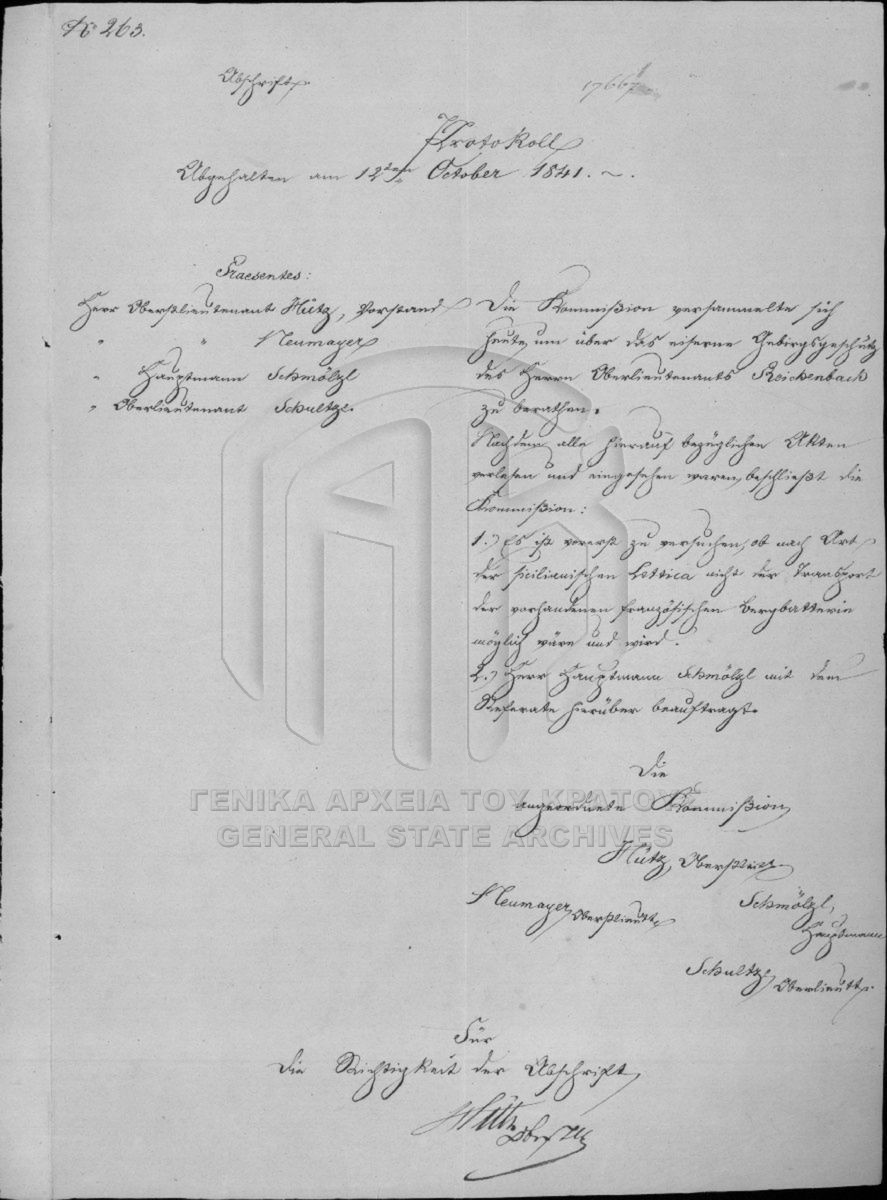 No 263.
Abschrift.
17667
Protokoll
Abgehalten am 12ten October 1841. ~.
Praesentes:
Herr Oberstlieutenant Hütz, Vorstand
" " Neumayer
" Hauptmann Schmölzl
" Oberlieutenant Schultze.
Die Kommißion versammelte sich
heute, um über das eiserne Gebirgsgeschütz
des Herrn Oberlieutenants Reichenbach
zu berathen.
Nachdem alle hierauf bezüglichen Akten
verlesen und eingesehen waren, beschließt die
Kommißion:
1.) Es ist vorerst zu versuchen, ob nach Art
der sicilianischen Lettica nicht der Transport
der vorhandenen französischen Bergbatterie
möglich wäre und wird.
2.) Herr Hauptmann Schmölzl mit dem
Referate hierüber beauftragt.
Die
angeordnete Kommißion
Hütz, Oberstlieutt.
Neumayer, Oberstlieutt.
Schmölzl,
Hauptmann
Schultze, Oberlieutt.
Für
die Richtigkeit der Abschrift
Hütz
Oberstlt
ΓΕΝΙΚΑ ΑΡΧΕΙΑ ΤΟΥ ΚΡΑΤΟΥΣ
GENERAL STATE ARCHIVES